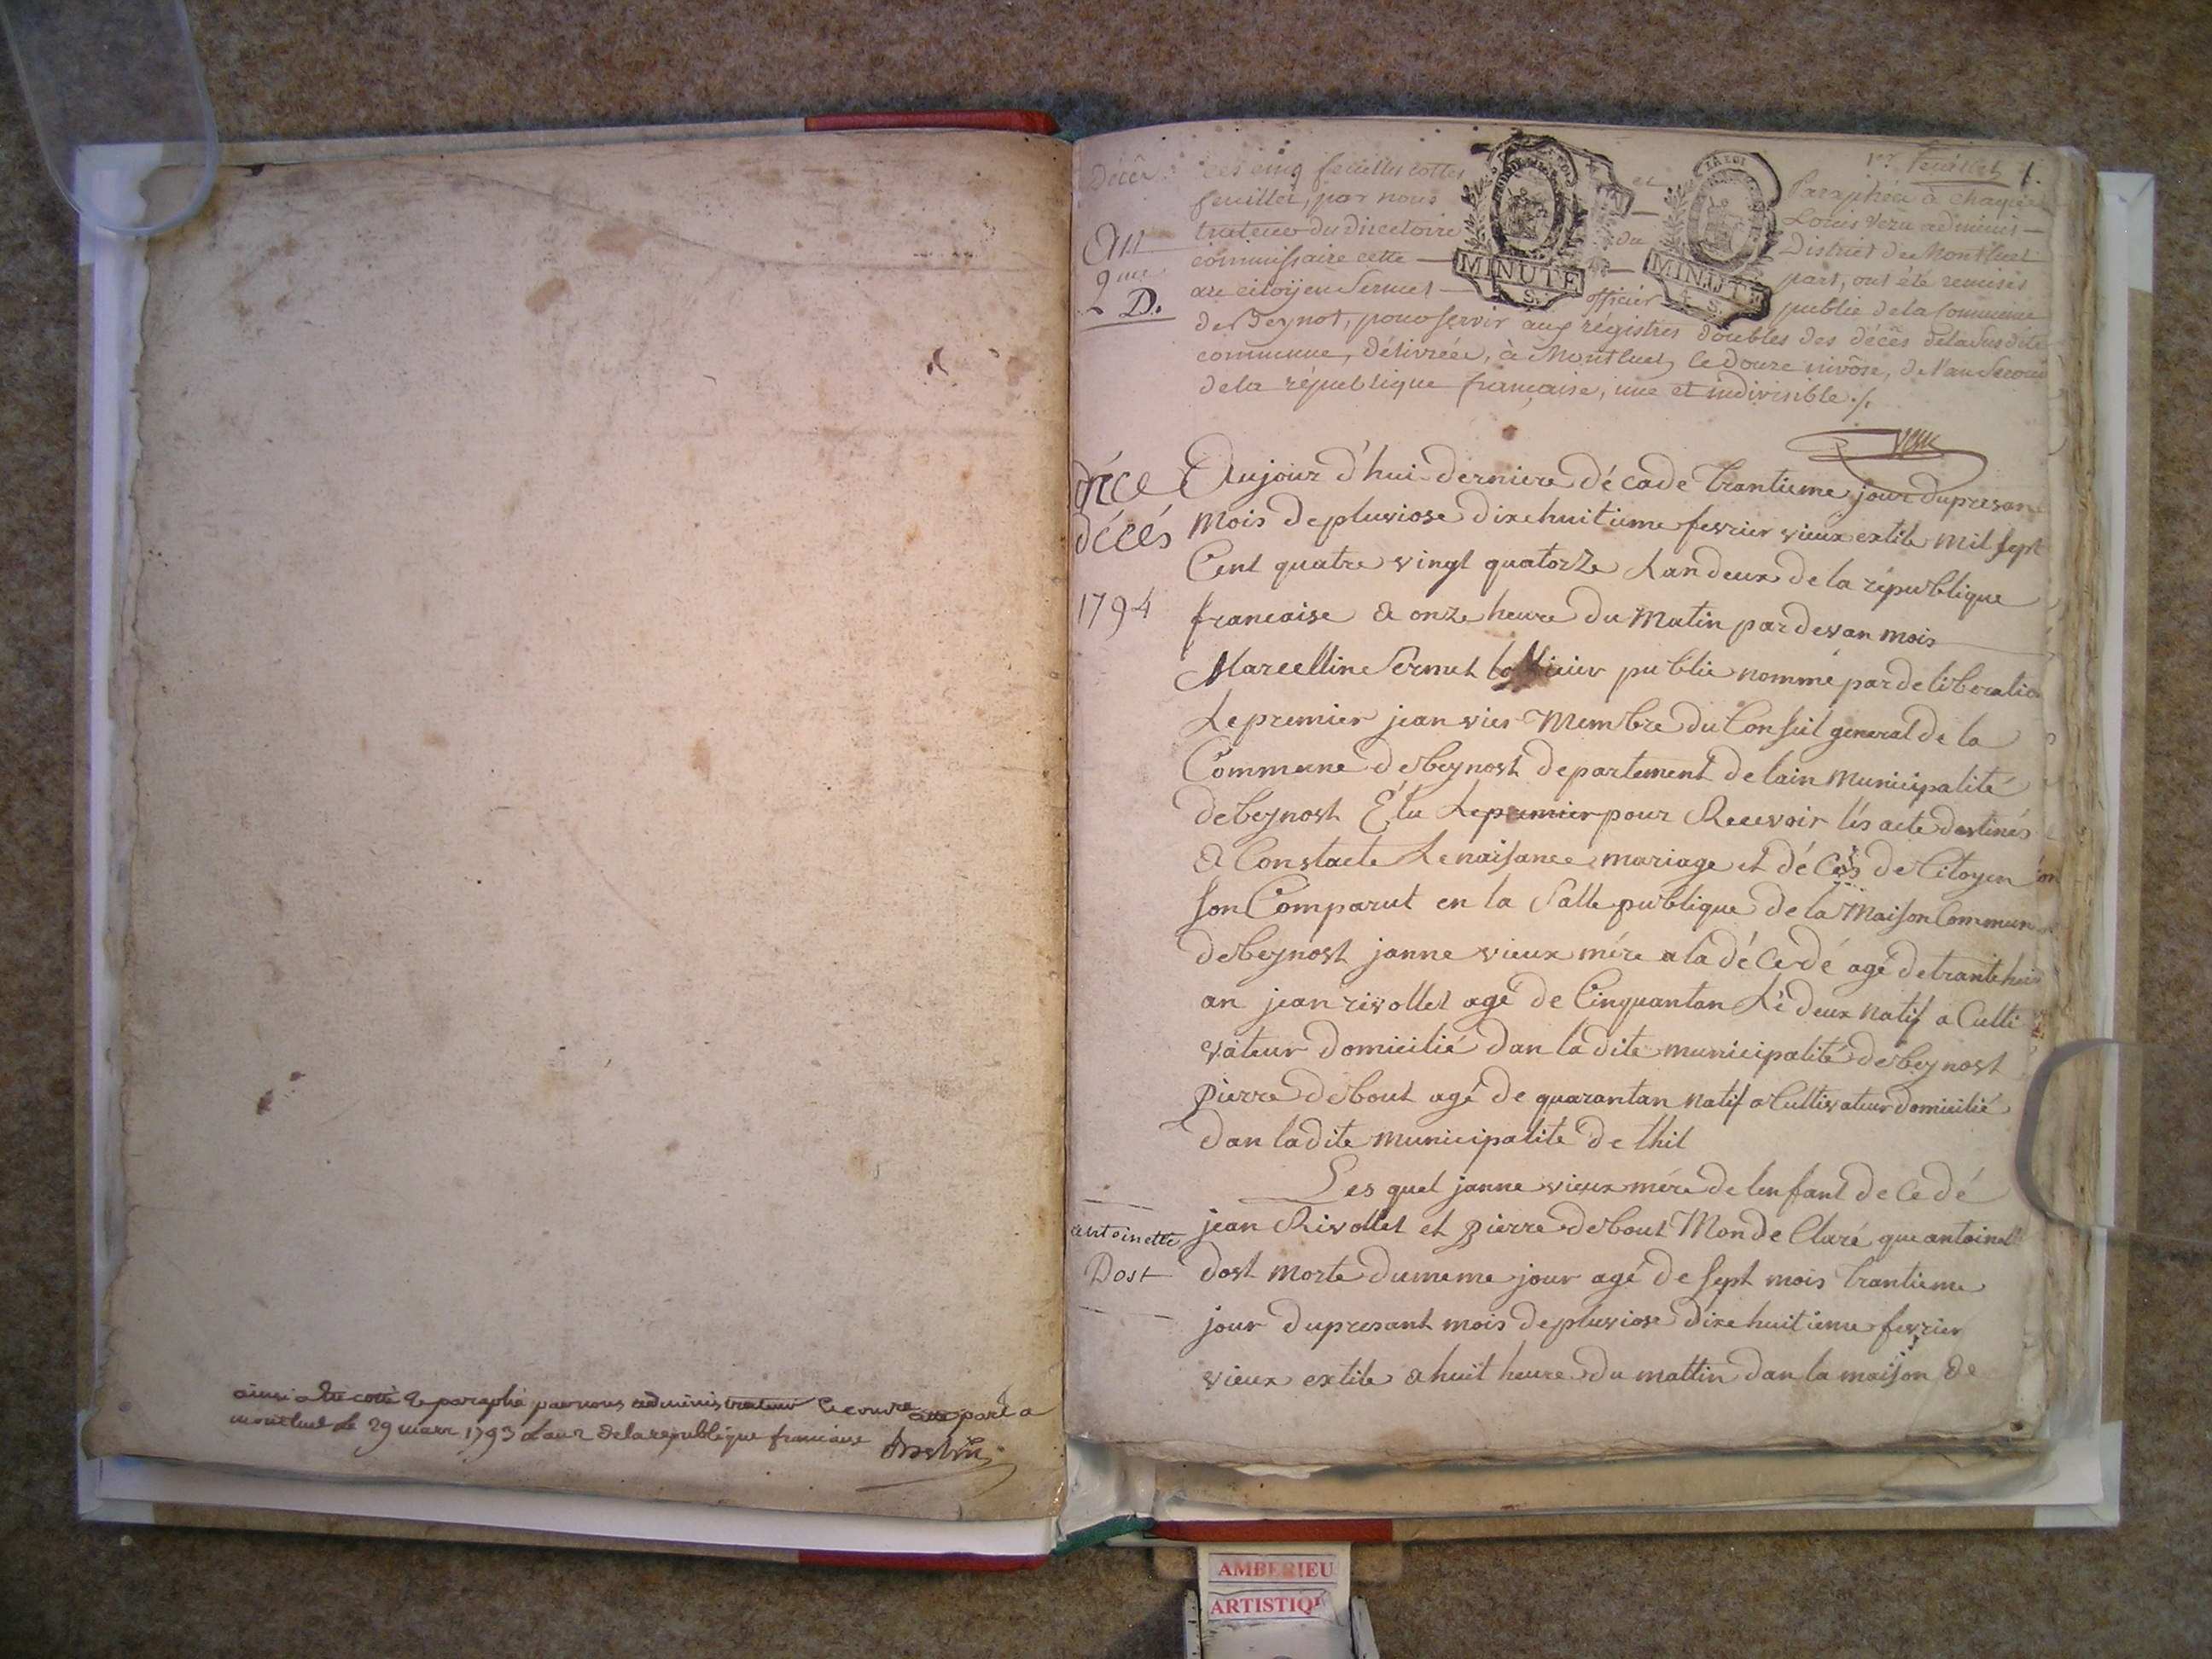 ainsi a été cotté & paraphé par nous administrateur
montluel le 29 mars 1793 l'an 2 de la republique francaise
1er feuillet 1.
Décè
An
2me
D.
Ces cinq feuilles cottés et Paraphée à chaque
feuillet, par nous Louis Veru adminis-
trateur du directoire du District de Montluel
commissaire cette part, ont été remises
au citoÿen Sermet officier public de la commune
de Beynot, pour servir aux régistres doubles des décès de la susdite
commune, délivrée, à Montluel, le douze nivôse, de l'an second
de la république française, une et indivisible ./.
LA LOI
MINUTE
4. S.
LA LOI
MINUTE
4. S.
décé
décés
1794
Aujour d'hui derniere décade trantieme jour du presant
mois de pluviose dixehuitieme fevrier vieux extile mil sept
Cent quatre vingt quatorze Lan deux de la république
francaise a onze heure du matin par devan mois
Marcelline Sermet public nommé par deliberatio
Le premier jeanvier Membre du Conseil general de la
Commune de beynost departement de lain municipalité
de beynost Élu Le premier pour Recevoir lés acte destinés
a Constacte Le naisance mariage et décés de Citoyen
son Comparut en la Salle publique de la Maison Commun
de beynost janne vieux mére a la décedé agé de trante huit
an jean rivollet agé de Cinquantan Lé deux natif a Culti
vateur domicilié dan la dite municipalité de beynost
pierre debout agé de quarantan natif a Cultivateur domicilié
dan la dite municipalité de thil
Les quel janne vieux mére de lenfant decedé
jean Rivollet et pierre debout Mon de Claré que antoinet
antoinette
Dost
dost morte du meme jour agé de sept mois trantieme
jour du presant mois de pluviose dixe huitieme fevrier
vieux extile a huit heure du mattin dan la maison de
AMBERIEU
ARTISTIQU